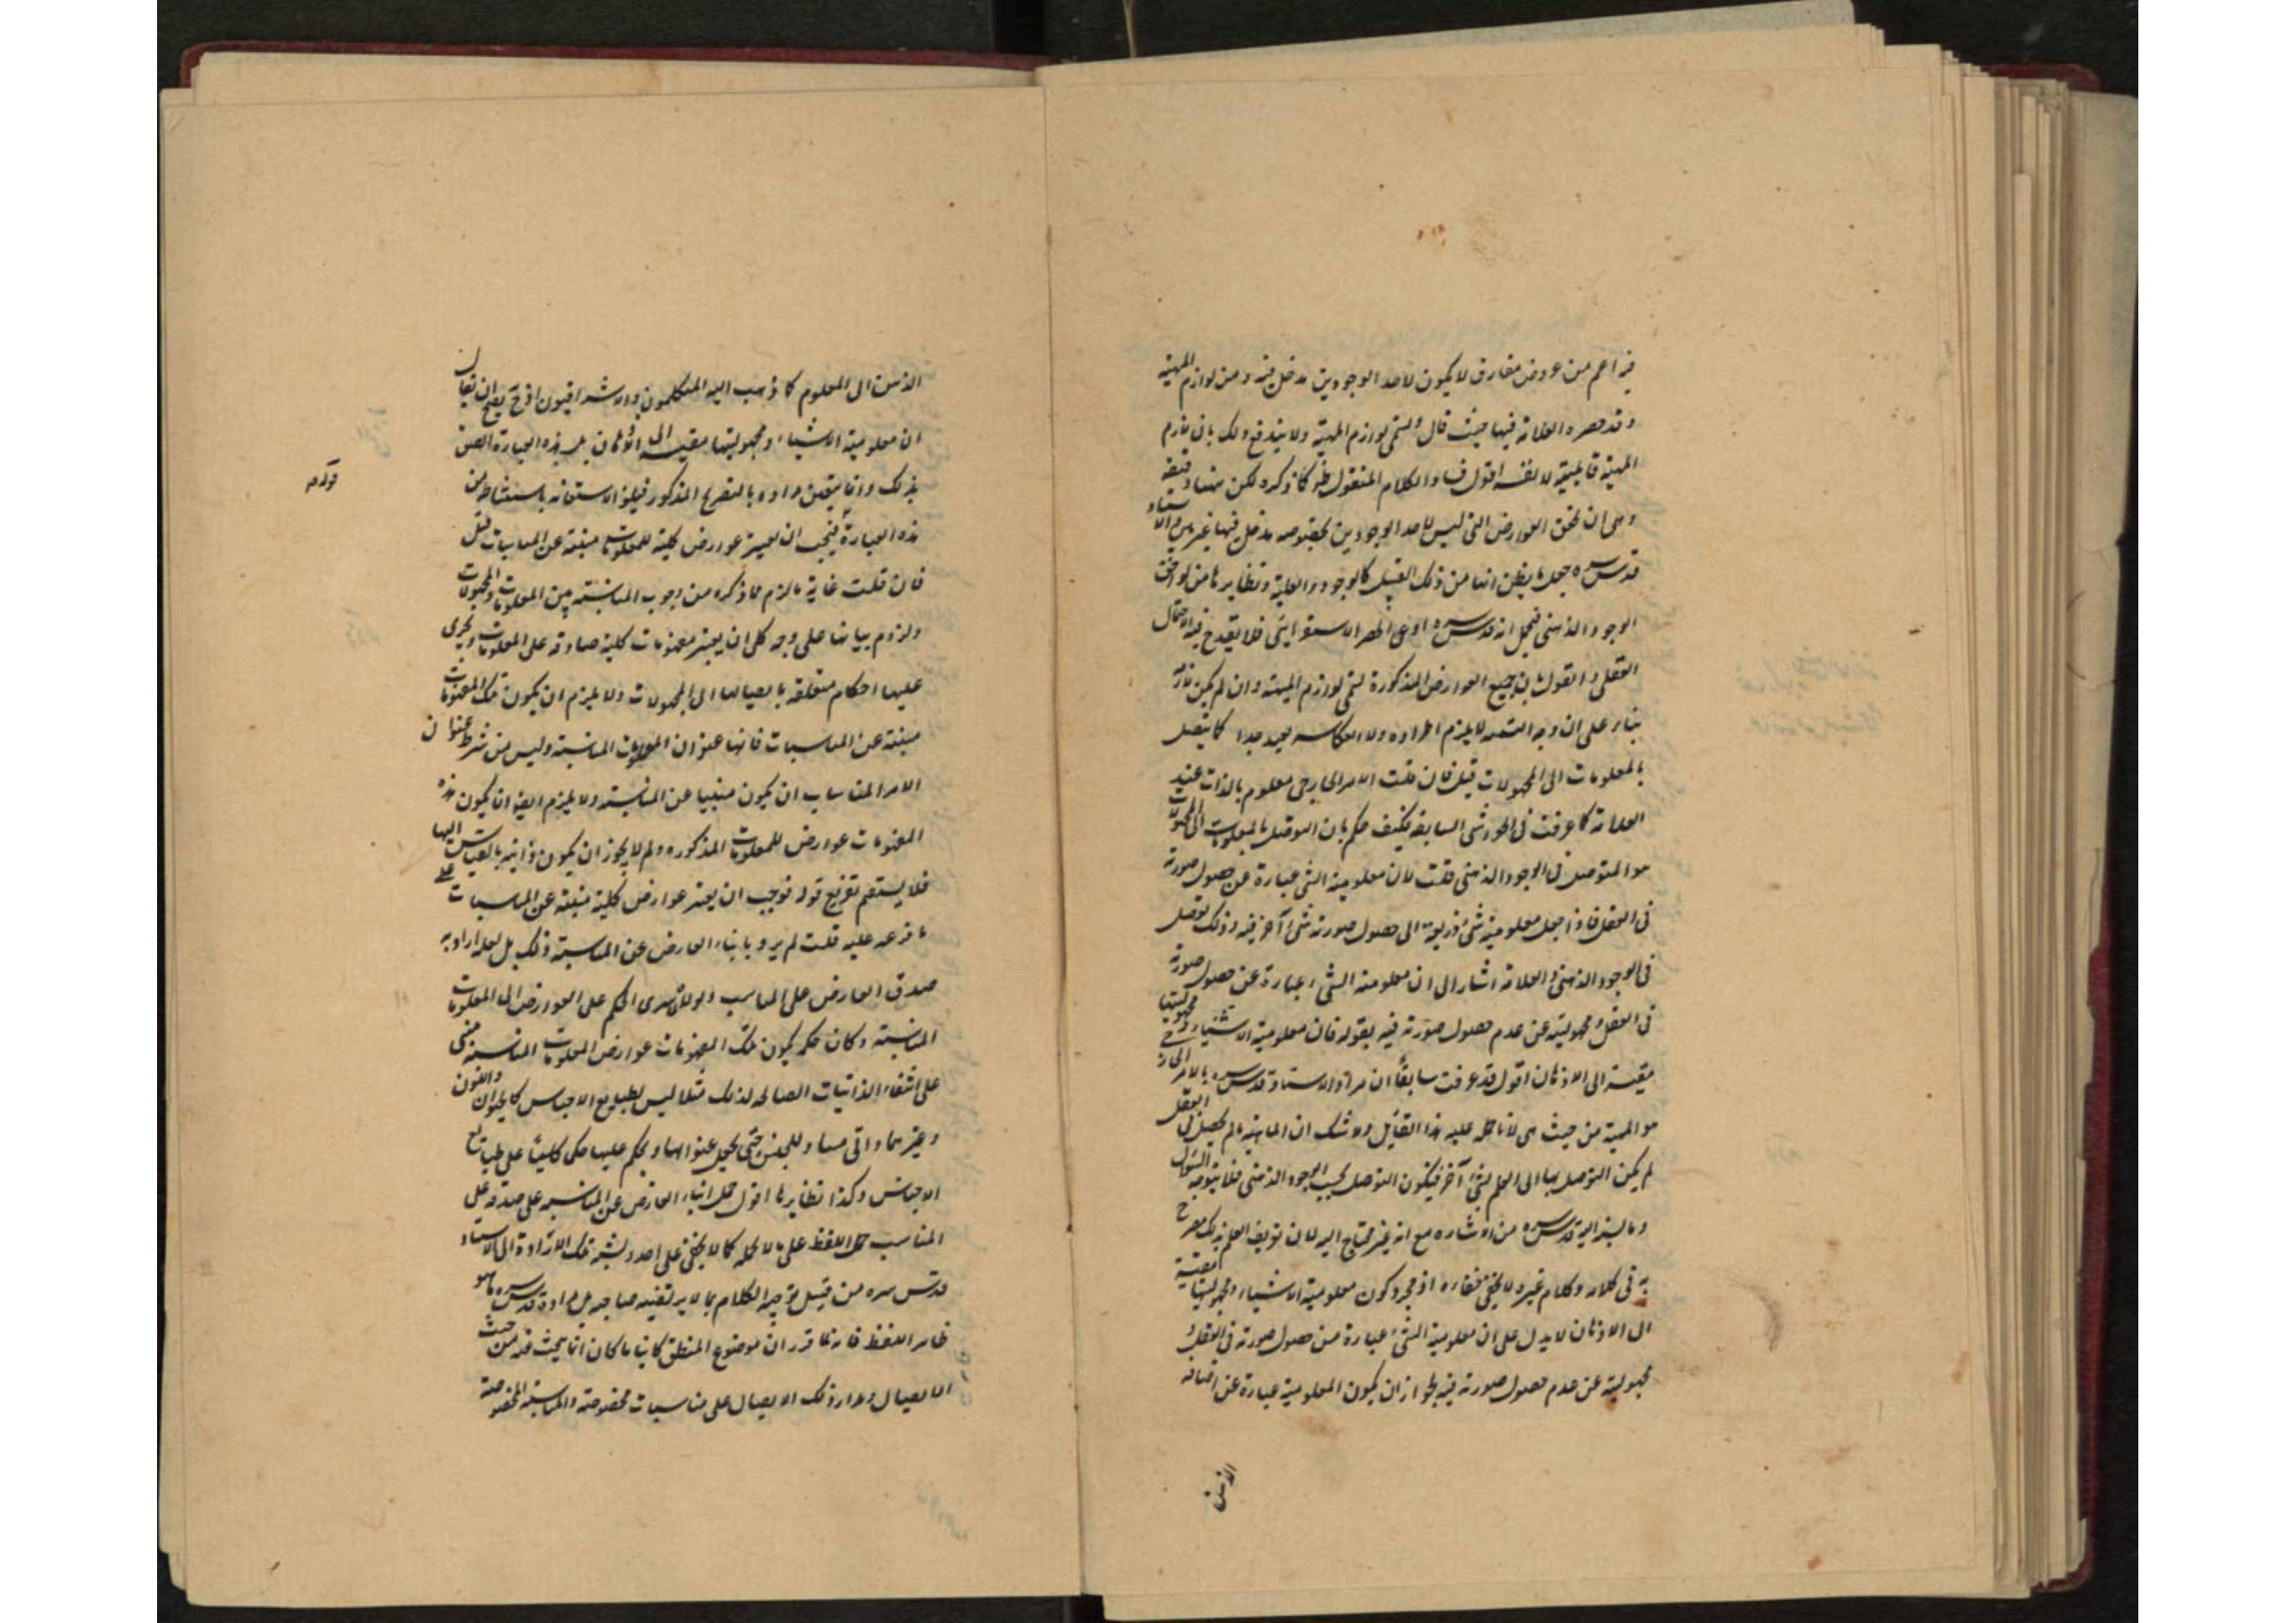 فيه اعم من عرض مفارق لا يكون لاحد الوجودين مدخل فيه ومن لوازم المهية
وقد حصره العلامة فيها حيث قال وتسمى لوازم المهية ولا يندفع ذلك بان لازم
المهية قابلية لا نفسه اقول فساد الكلام المنقول ظ كما ذكره لكن ههنا دقيقة
وهي ان تحقق العوارض التي ليس لاحد الوجودين بخصوصه مدخل فيها غير الاستاد
قدس سره جعل ما يظن انها من ذلك القبيل كالوجود والعلية ونظايرها من لواحق
الوجود الذهني فيحمل انه قدس سره ادعى الحصر الاستقرائي فلا يقدح فيه الاحتمال
العقلي والقول بان جميع العوارض المذكورة تسمى لوازم المهية وان لم يكن لازمة
بناء على ان وجه التسمية لا يلزم اطراده ولا انعكاسه بعيد جدا كما يتصل
بالمعلومات الى المجهولات قيل فان قلت الامر الخارجي معلوم بالذات عند
العلامة كما عرفت في الحواشي السابقة فكيف حكم بان التوصل بالمعلومات الى المجهولات
هو المتوصل في الوجود الذهني قلت لان معلومية الشي عبارة عن حصول صورته
في العقل فاذا جعل معلومية شئ ذريعة الى حصول صورته شئ آخر فيه وذلك توصل
في الوجود الذهني والعلامة اشار الى ان معلومية الشئ عبارة عن حصول صورته
في العقل ومجهوليته عن عدم حصول صورته فيه بقوله فان معلومية الاشياء ومجهوليتها
مقيسة الى الاذهان اقول قد عرفت سابقاً ان مراد الاستاد قدس سره بالامر الخارجي
هو المهية من حيث هي لا ما حمله عليه هذا القايل ولا شك ان الماهية ما لم يحصل في العقل
لم يكن التوصل بها الى العلم بشئ آخر فيكون التوصل بحسب الوجود الذهني فلا يتوجه السؤال
وما نسبه اليه قدس سره من الاشارة مع انه غير محتاج اليه لان تعريف العلم بذلك مصرح
به في كلامه وكلام غيره لا يخفى خفاءه اذ مجرد كون معلومية الاشياء ومجهوليتها مقيسة
الى الاذهان لا يدل على ان معلومية الشئ عبارة عن حصول صورته في العقل و
مجهوليته عن عدم حصول صورته فيه لجواز ان يكون المعلومية عبارة عن اضافة
الذهن
الذهن الى المعلوم كما ذهب اليه المتكلمون والاشراقيون اذ ح يصح ان يقال
ان معلومية الاشياء ومجهوليتها مقيسه الى الاذهان بل هذه العبارة الصق
بذلك وانما يتعين مراده بالتصريح المذكور فيلغو الاستعانة باستنشاط من
هذه العبارة فيجب ان تعتبر عوارض كلية للمعلومات منبئة عن المناسبات قيل
فان قلت غاية ما لزم مما ذكره من وجوب المناسبة بين المعلومات والمجهولات
ولزوم بيانها على وجه كلي ان يعتبر مفهومات كلية صادقة على المعلومات ويجرى
عليها احكام متعلقة بايصالها الى المجهولات ولا يلزم ان يكون تلك المفهومات
منبئة عن المناسبات فانها عنوان المعلومات المناسبة وليس من شرط عنوان
الامر المناسب ان يكون منبيا عن المناسبة ولا يلزم ايضا ان يكون هذه
المفهومات عوارض للمعلومات المذكوره ولم لا يجوز ان يكون ذاتية بالقياس اليها
فلا يستقيم تفريع قوله فوجب ان يعتبر عوارض كلية منبئة عن المناسبات على
ما فرعه عليه قلت لم يرد بانباء العارض عن المناسبة ذلك بل لعله اراد به
صدق العارض على المناسب والا لم يسرى الحكم على العوارض الى المعلومات
المناسبة وكان حكمه بكون تلك المفهومات عوارض المعلومات المناسبة مبنى
على انتفاء الذاتيات الصالحه لذلك مثلا ليس لطبايع الاجناس كالحيوان واللون
وغيرهما ذاتى مساو للجنس حتى يجعل عنوانها ويحكم عليها حكما كليّاً على طبايع
الاجناس وكذا نظايرها اقول حمل انباء العارض عن المناسبه على صدقه على
المناسب حمل اللفظ على ما لا يحمله كما لا يخفى على احد ونسبه تلك الارادة الى الاستاد
قدس سره من قبيل توجيه الكلام بما لا يرتضيه صاحبه بل مراده قدس سره ما هو
ظاهر اللفظ فانه لما قرر ان موضوع المنطق كاينا ما كان انما يبحث فيه من حيث
الايصال ومدار ذلك الايصال على مناسبات مخصوصة والمناسبة المخصوصة
قوله